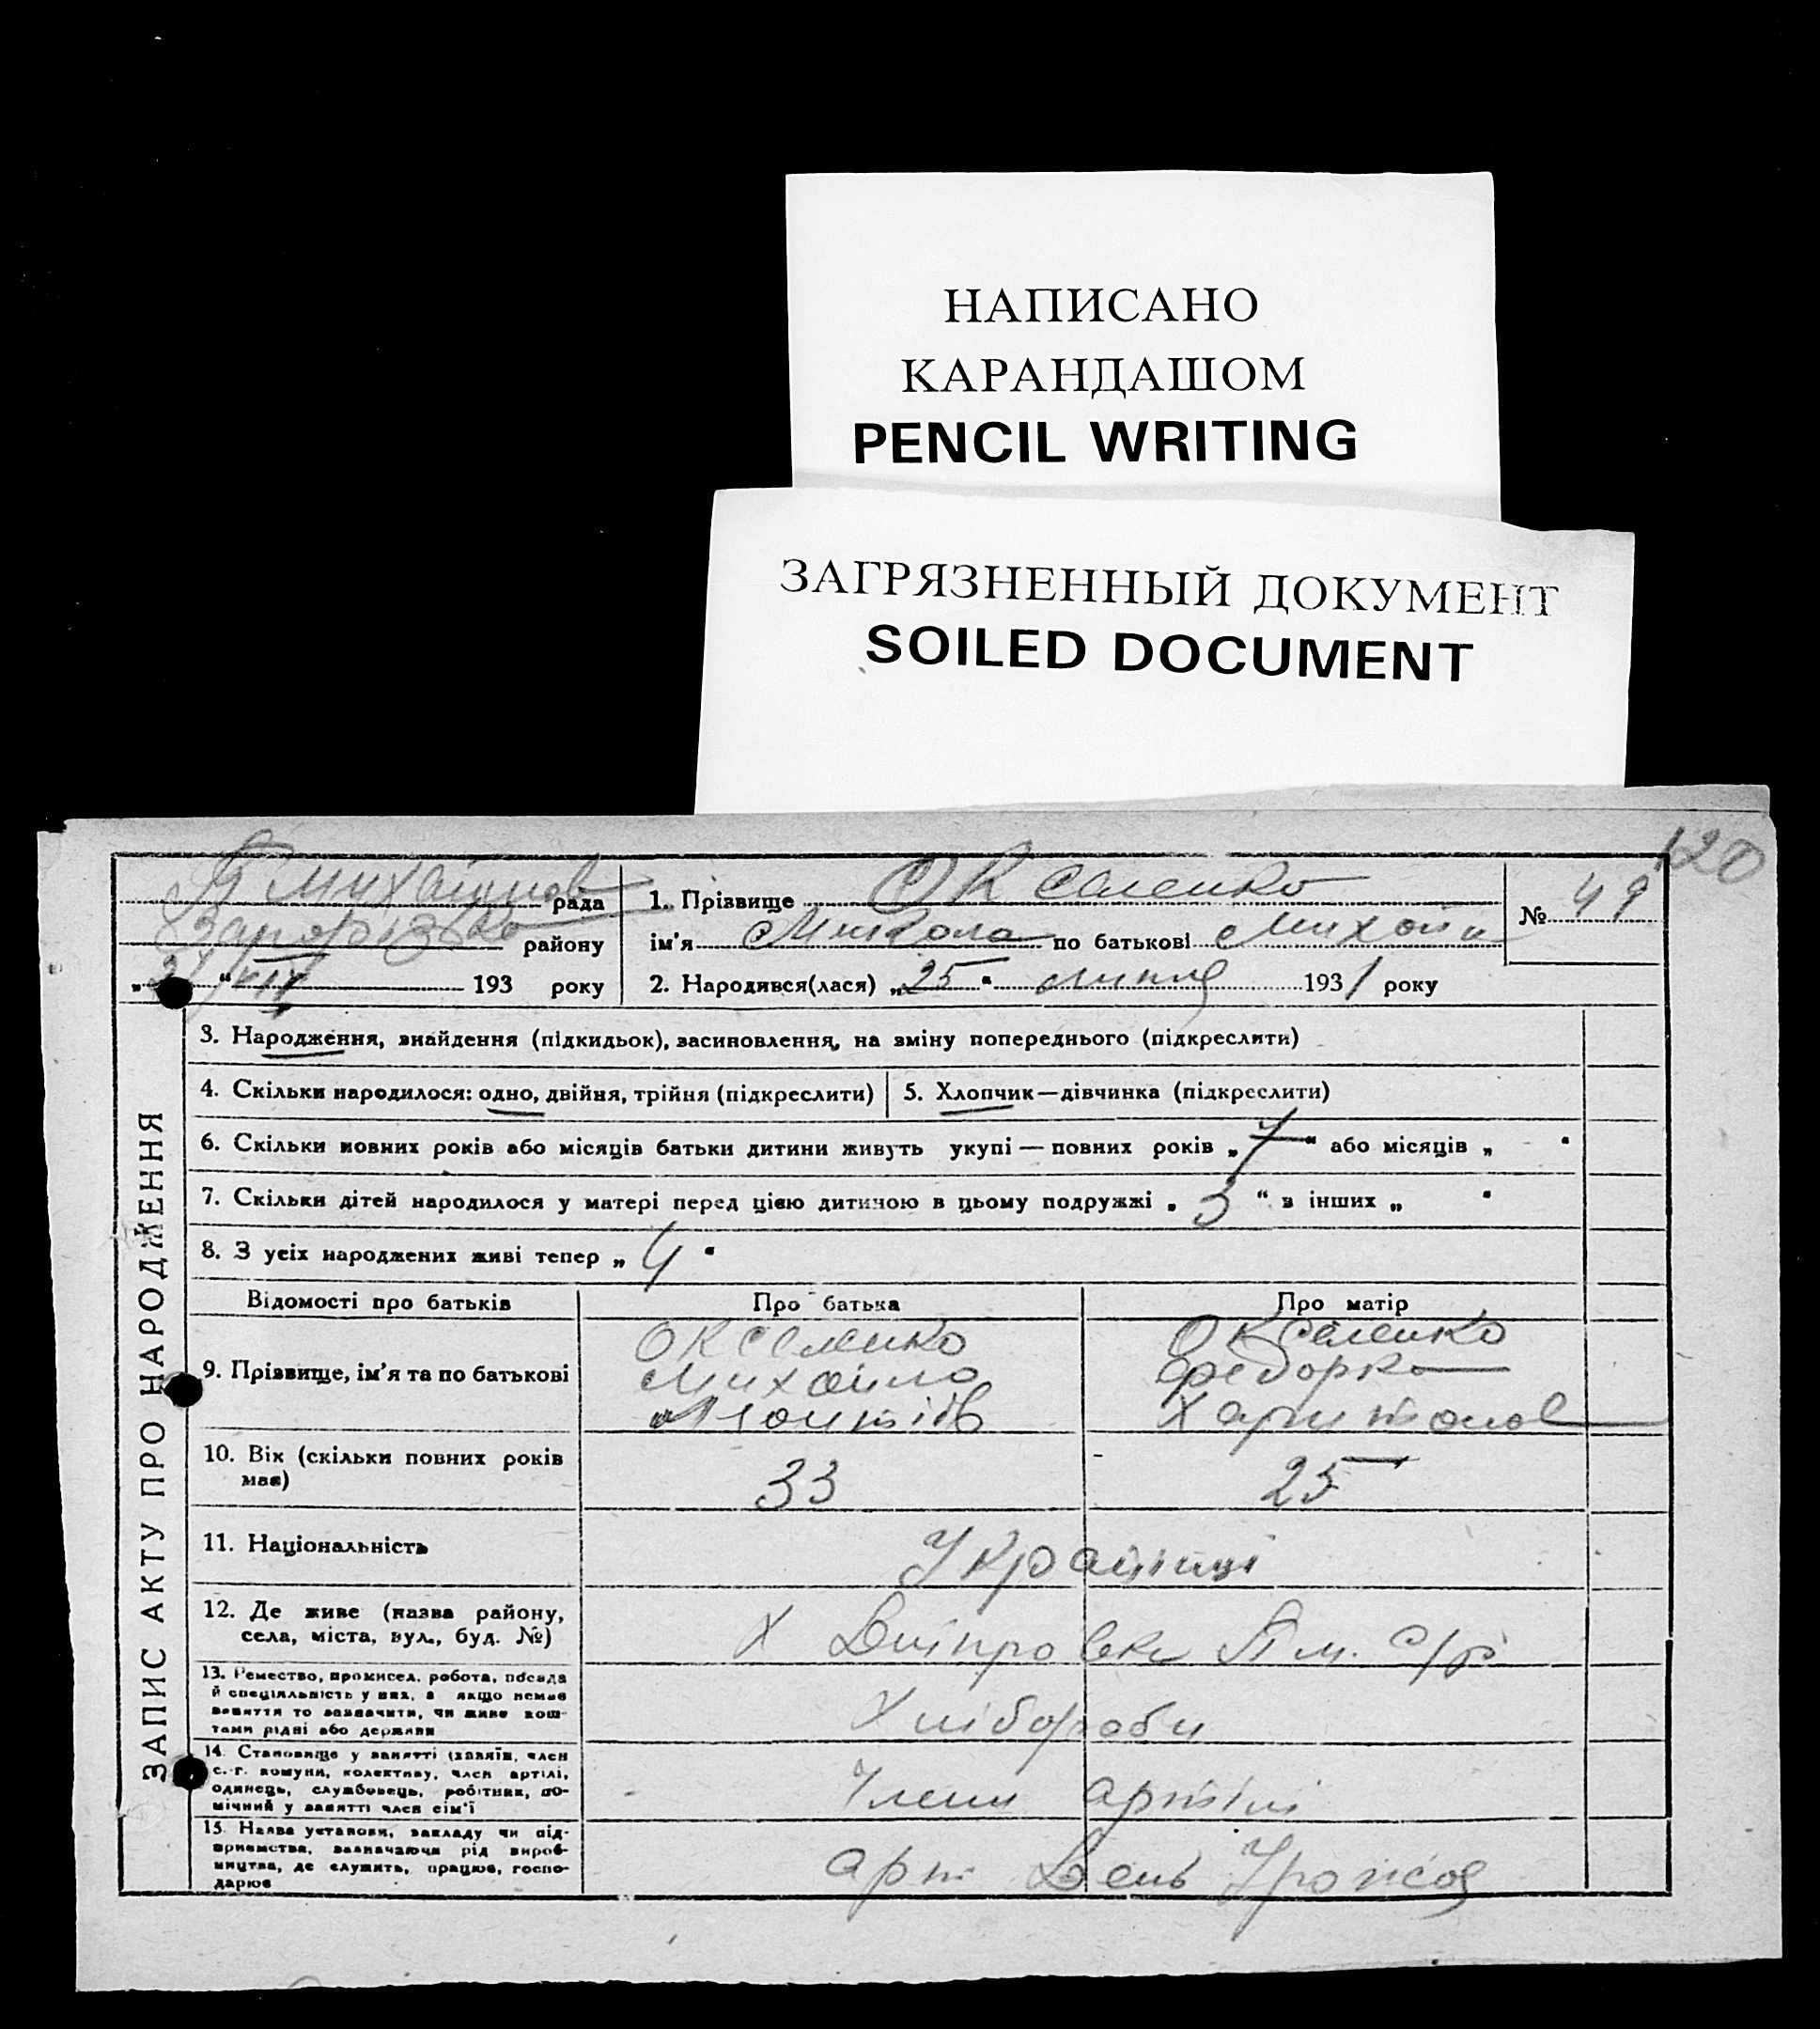 НАПИСАНО
КАРАНДАШОМ
PENCIL WRITING
ЗАГРЯЗНЕННЫЙ ДОКУМЕНТ
SOILED DOCUMENT
120
рада
району
193 року
1. Прізвище
№ 49
ім'я Микола по батькові Михайл
2. Народився(лася) „25“ липня 1931 року
ЗАПИС АКТУ ПРО НАРОДЖЕННЯ
3. Народження, знайдення (підкидьок), засиновлення, на зміну попереднього (підкреслити)
4. Скільки народилося: одно, двійня, трійня (підкреслити)
5. Хлопчик—дівчинка (підкреслити)
6. Скільки повних років або місяців батьки дитини живуть укупі — повних років „7“ або місяців „ “
7. Скільки дітей народилося у матері перед цією дитиною в цьому подружжі „3“ в інших „ “
8. З усіх народжених живі тепер „4“
Відомості про батьків
Про батька
Про матір
9. Прізвище, ім'я та по батькові
Михайло
Федорка
Харитонов
10. Вік (скільки повних років має)
33
25
11. Національність
Українці
12. Де живе (назва району,
села, міста, вул., буд. №)
Х Дніпровка П м. с/р
13. Ремество, промисел, робота, посада
й спеціяльність у них, а якщо немає
заняття то зазначити, чи живе кош-
тами рідні або держави
Хлібороби
14. Становище у занятті (хазяїн, член
с.-г. комуни, колективу, член артілі,
одинець, службовець, робітник, по-
мічний у занятті член сім'ї
Члени артілі
15. Назва установи, закладу чи під-
приємства, зазначаючи рід вироб-
ництва, де служить, працює, госпо-
дарює
арт День Урожая